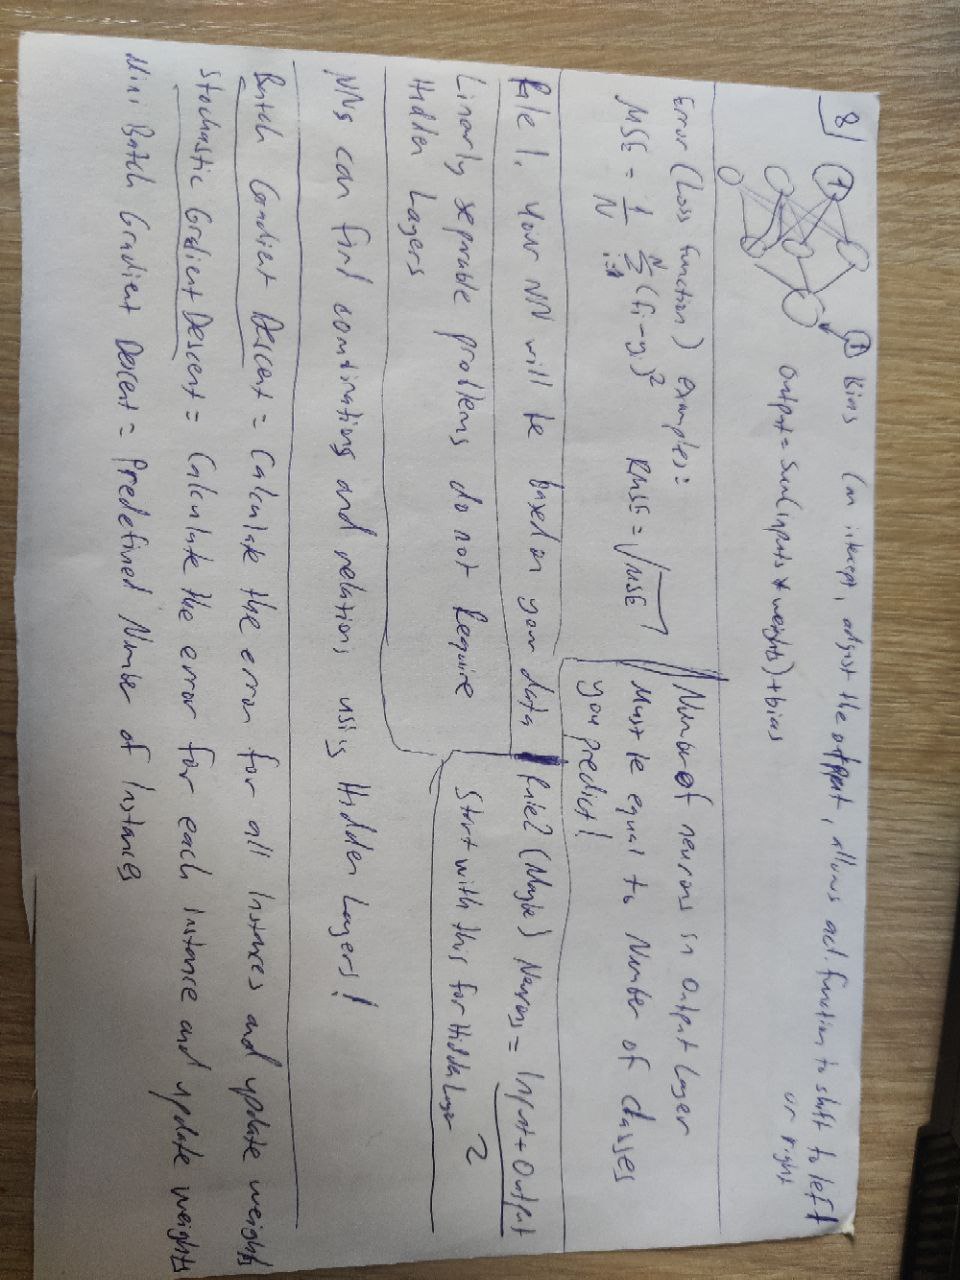 8)
1
1 Bias (an intecept, adjust the output, allows act. function to shift to left
or right
Output = Sum(inputs * weights) + bias
Error (Loss function) examples:
MSE = 1/N N Σ i=1 (fi - yi)²
RMSE = √MSE
Number of neurons in Output Layer
Must be equal to Number of classes
you predict!
Rule 1. Your NN will be based on your data
Rule2 (Maybe) Neurons = Input + Output / 2
Start with this for Hidden Layer
Linearly seprable problems do not Require
Hidden Layers
NNs can find combinations and relations using Hidden Layers!
Batch Gradient Descent = Calculate the error for all Instances and update weights
Stochastic Gradient Descent = Calculate the error for each Instance and update weights
Mini Batch Gradient Descent = Predefined Number of Instances